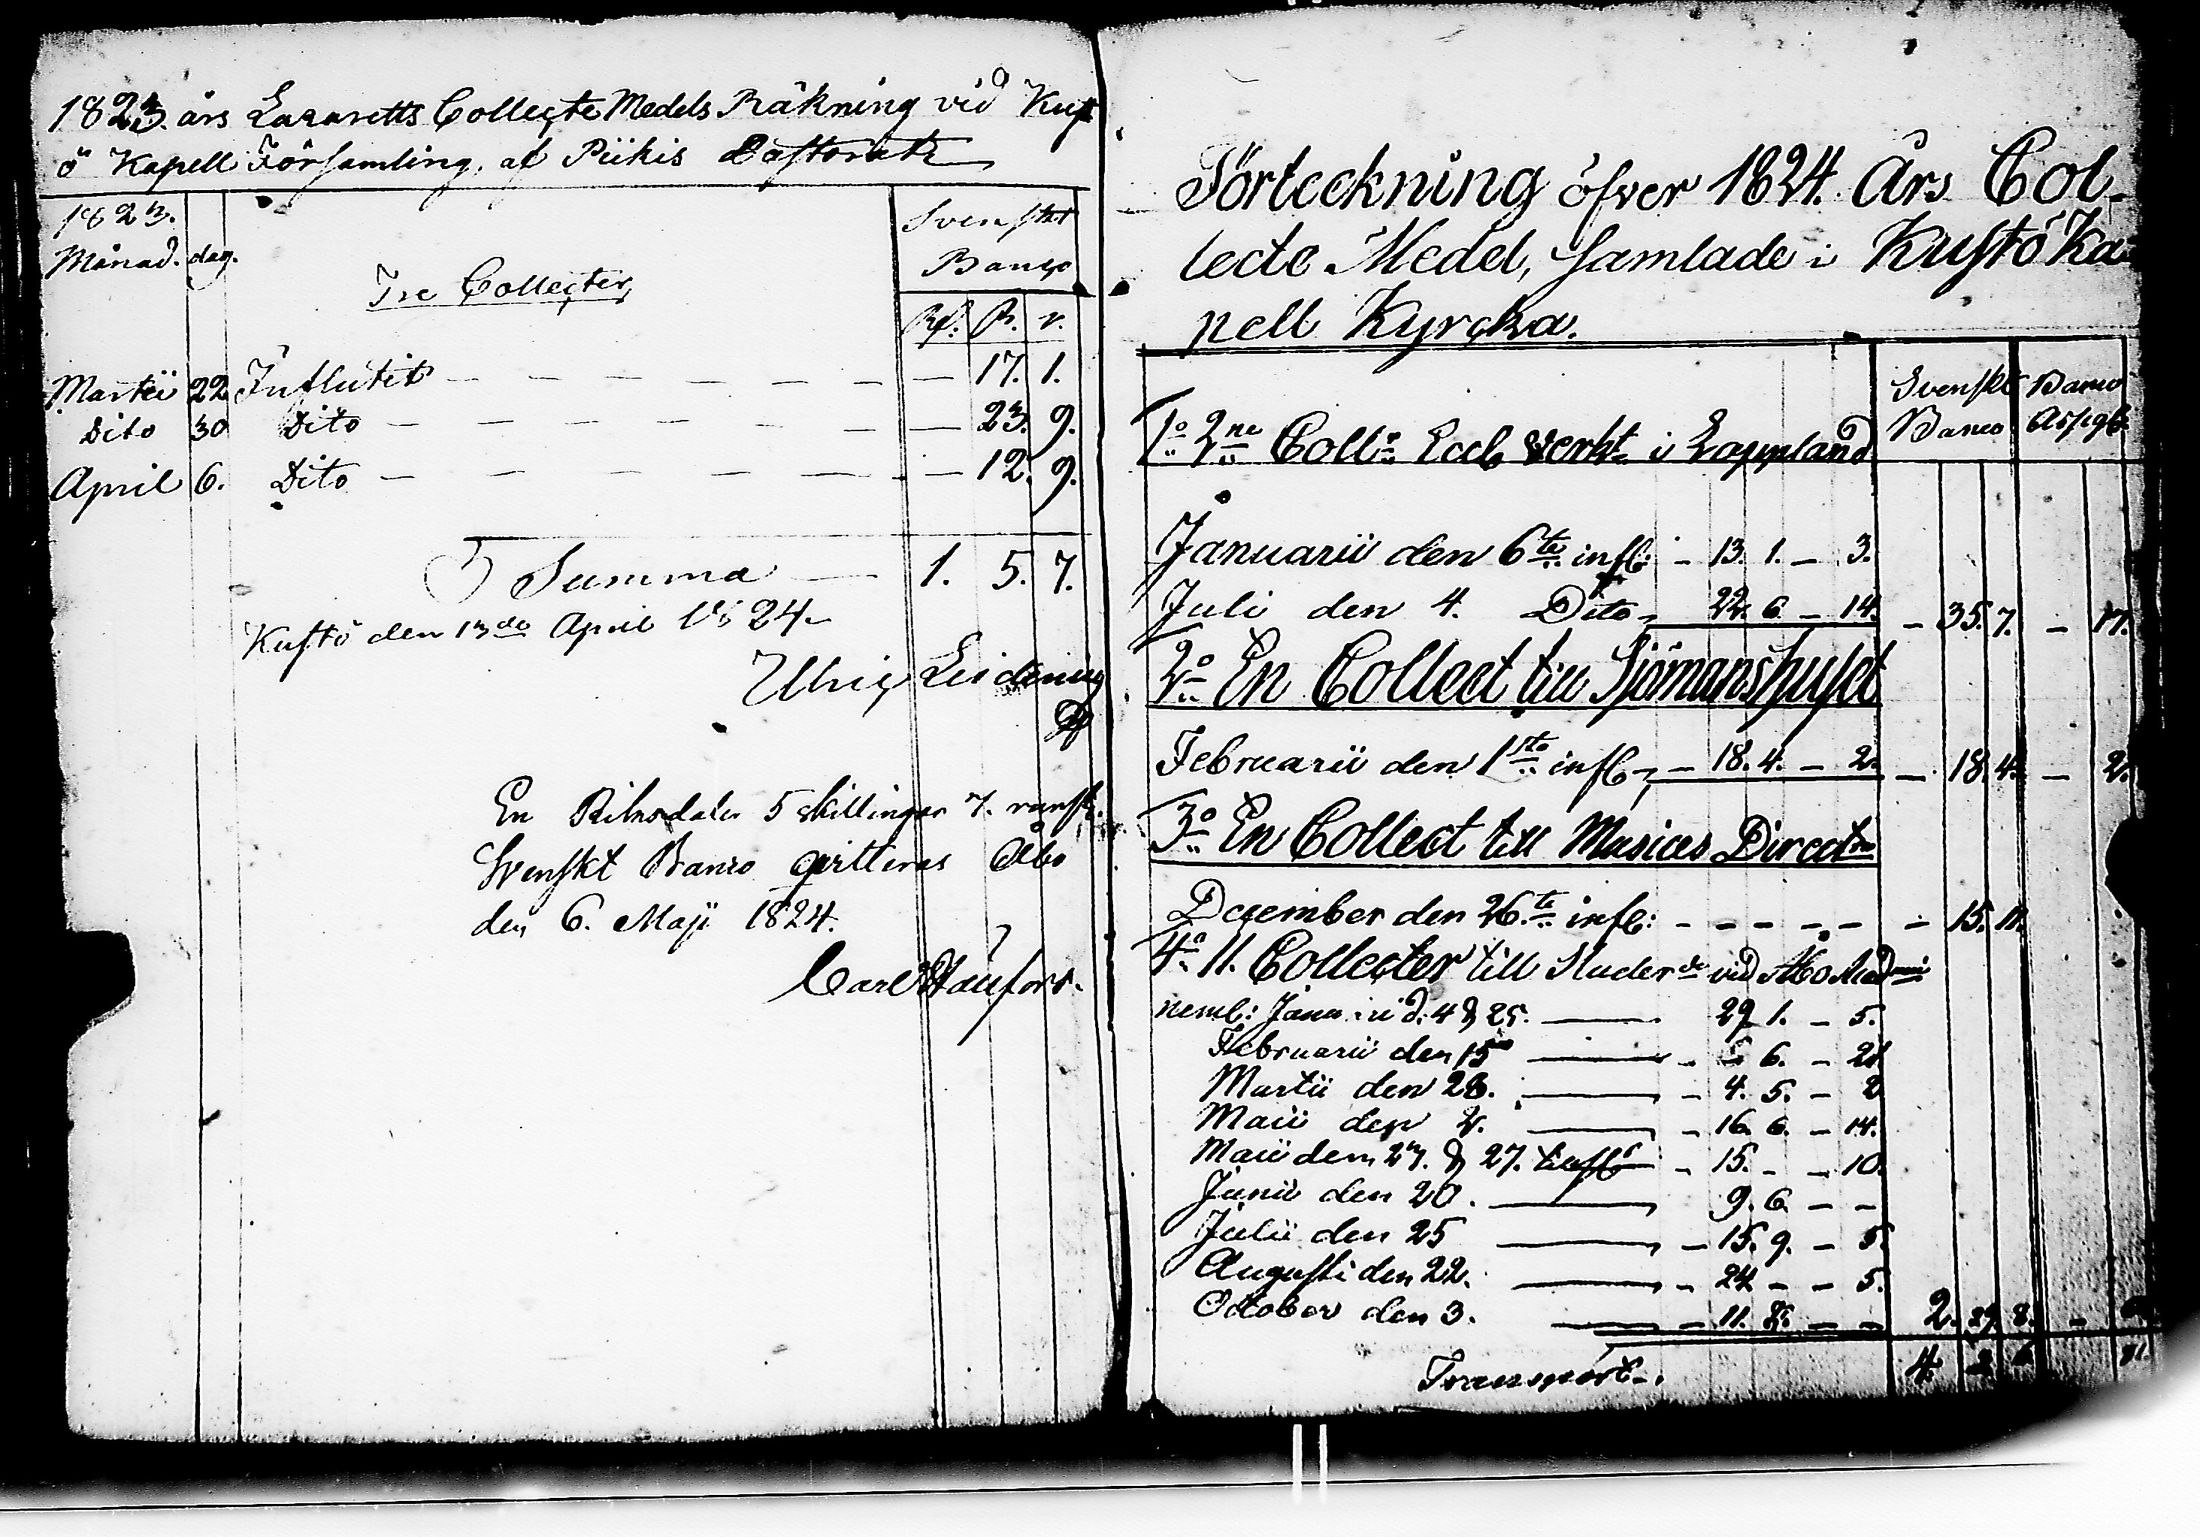 1823. års Lazaretts Collecte Medels Räkning vid Kust
ö Kapell Församling, af Piikis Pastorat
1823.
Månad. dag.
Tre Collecter,
Svenskt
Banco
Rd. sk. r.
Martii 22 Influtit — — — — — — — 17. 1.
Dito 30 Dito — — — — — — — 23. 9.
April 6. Dito — — — — — — — 12. 9.
Summa — 1. 5. 7.
Kustö den 13de April 1824.
Ulric Leidenius
En Riksdaler 5 skillingar 7. runst.
Svenskt Banco qvitteras Åbo
den 6. Maji 1824.
Carl
Förteckning öfver 1824. Års Col-
lecte Medel, samlade i Kustö Ka-
pell Kyrcka.
Svenskt Banco
Banco Assigt.
1o 2ne Coll:r Eccl. Verkt i Lappland
Januarii den 6te infl: - 13. 1. - 3.
Juli den 4. Dito - 22. 6. - 14. - 35. 7. - 17.
2o En Collect till Sjömanshuset
Februarii den 1sta infl. - 18. 4. - 2. - 18. 4. - 2.
3o En Collect till Musices Direct
December den 26.te infl: - - - - - - 15. 11.
4o 11. Collecter till Studerde vid Åbo Acad
neml: Januarii d. 4 & 25. — 29 1. - 5.
Februarii den 15 — - 6. - 21
Martii den 28. — - 4. 5. - 2
Maii den 2. — - 16. 6. - 14.
Maii den 23. & 27. - 15. - - 10.
Junii den 20. — 9. 6 - -
Julii den 25 — - 15. 9. - 5.
Augusti den 22. — - 24 - - 5.
October den 3. — - 11. 8. - - 2. 29. 8. -
Transport. 4.